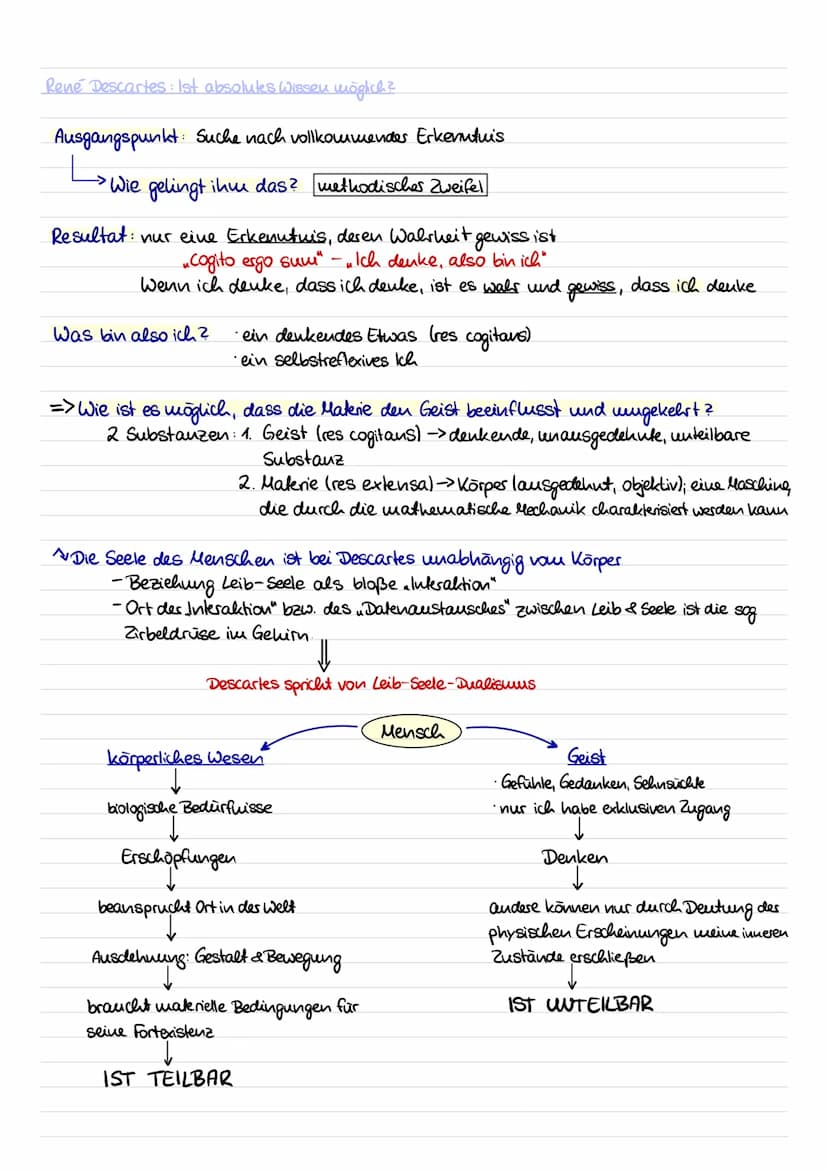 René Descartes: Ist absolutes Wissen möglich?
Ausgangspunkt: Suche nach vollkommender Erkenntnis
Wie gelingt ihm das? methodischer Zweifel
Resultat: nur eine Erkenntnis, deren Wahrheit gewiss ist
„Cogito ergo sum" - „Ich denke, also bin ich"
Wenn ich denke, dass ich denke, ist es wahr und gewiss, dass ich denke
Was bin also ich? · ein denkendes Etwas (res cogitans)
· ein selbstreflexives Ich
=> Wie ist es möglich, dass die Materie den Geist beeinflusst und umgekehrt?
2 Substanzen: 1. Geist (res cogitans) → denkende, unausgedehnte, unteilbare
Substanz
2. Materie (res extensa) → Körper (ausgedehnt, objektiv); eine Maschine,
die durch die mathematische Mechanik charakterisiert werden kann
Die Seele des Menschen ist bei Descartes unabhängig vom Körper
- Beziehung Leib-Seele als bloße „Interaktion"
- Ort der „Interaktion" bzw. des „Datenaustausches" zwischen Leib & Seele ist die sog
Zirbeldrüse im Gehirn
Descartes spricht von Leib-Seele-Dualismus
Mensch
körperliches Wesen
biologische Bedürfnisse
Erschöpfungen
beansprucht Ort in der Welt
Ausdehnung: Gestalt & Bewegung
braucht materielle Bedingungen für
seine Fortexistenz
IST TEILBAR
Geist
· Gefühle, Gedanken, Sehnsüchte
· nur ich habe exklusiven Zugang
Denken
andere können nur durch Deutung der
physischen Erscheinungen meine inneren
Zustände erschließen
IST UNTEILBAR